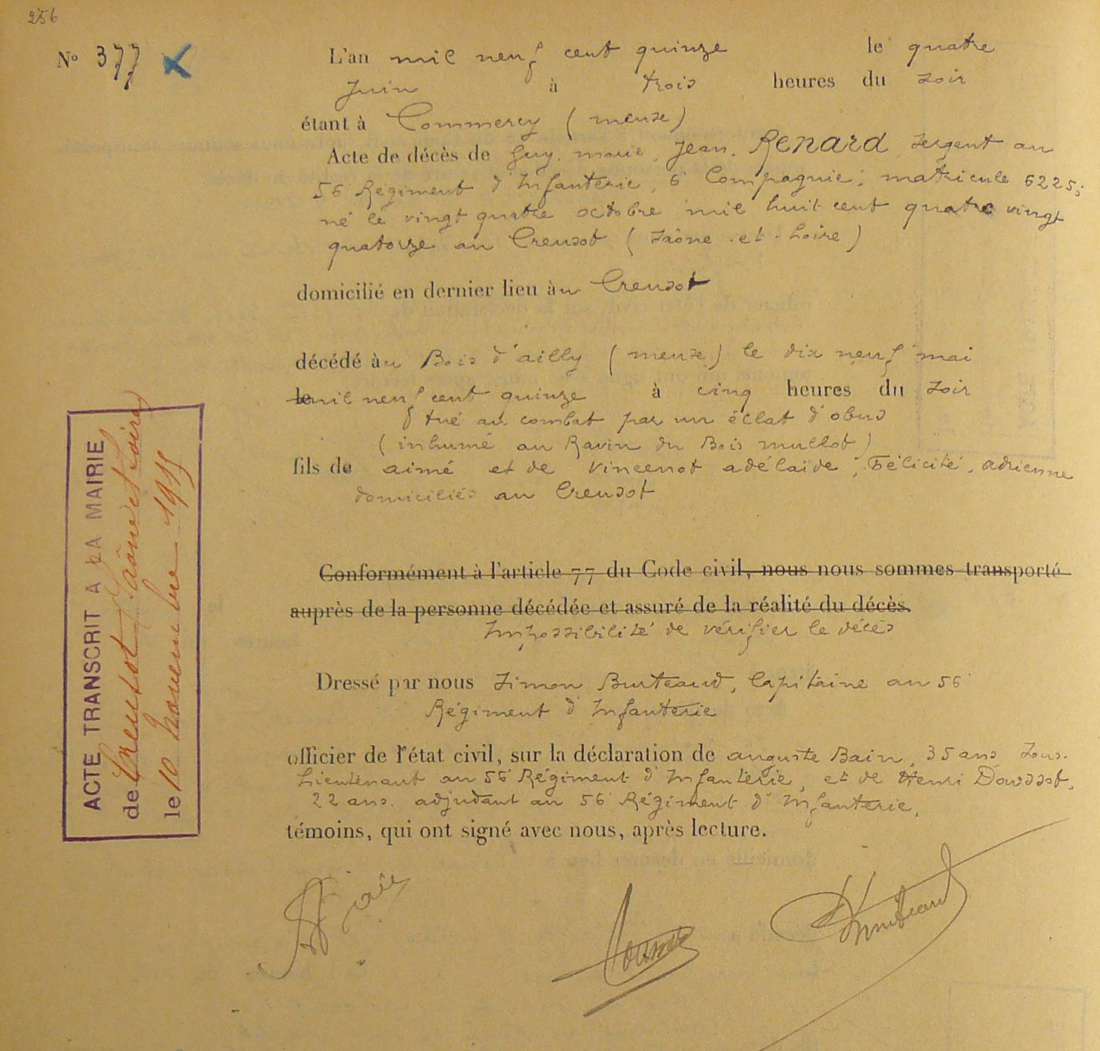 256
N° 377
L'an mil neuf cent quinze le quatre
Juin à trois heures du soir
étant à Commercy (meuse)
Acte de décès de Guy, marie, Jean, RENARD, sergent au
56 Régiment d'Infanterie, 6 Compagnie; matricule 6225;
né le vingt quatre octobre mil huit cent quatre vingt
quatorze au Creusot (Saône-et-Loire)
domicilié en dernier lieu àu Creusot
décédé àu Bois d'ailly (meuse) le dix neuf mai
le mil neuf cent quinze à cinq heures du soir
tué au combat par un éclat d'obus
(inhumé au Ravin du Bois mullot)
fils de aimé et de vincenot adélaïde, Félicité, adrienne
domiciliés au Creusot
Conformément à l'article 77 du Code civil, nous nous sommes transporté
auprès de la personne décédée et assuré de la réalité du décès.
Impossibilité de vérifier le décès
Dressé par nous Simon Burteaud, Capitaine au 56
Régiment d'Infanterie
officier de l'état civil, sur la déclaration de auguste Bain, 35 ans, Sous-
Lieutenant au 56 Régiment d'Infanterie, et de Henri Doussot,
22 ans, adjudant au 56 Régiment d'Infanterie,
témoins, qui ont signé avec nous, après lecture.
ACTE TRANSCRIT A LA MAIRIE
de Creusot Saône et Loire
le 10 Novembre 1915